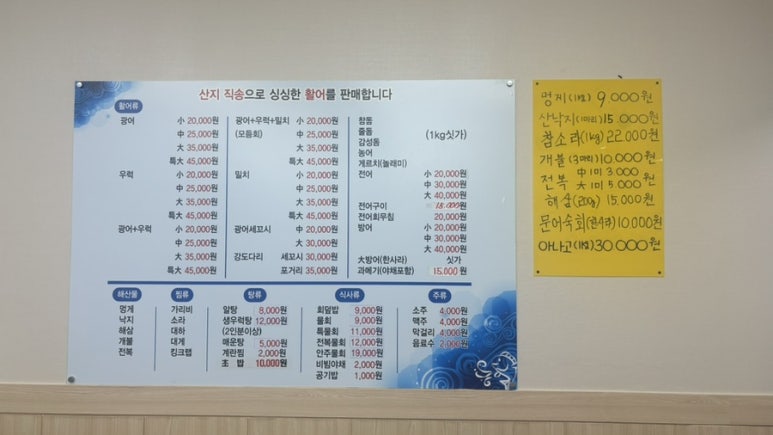 산지 직송으로 싱싱한 활어를 판매합니다
활어류
광어 小 20,000원
中 25,000원
大 35,000원
특大 45,000원
우럭 小 20,000원
中 25,000원
大 35,000원
특大 45,000원
광어+우럭 中 25,000원
大 35,000원
특大 45,000원
광어+우럭+밀치 小 20,000원
(모듬회) 中 25,000원
大 35,000원
특大 45,000원
밀치 小 20,000원
中 25,000원
大 35,000원
특大 45,000원
광어세꼬시 中 20,000원
大 30,000원
강도다리 세꼬시 30,000원
포거리 35,000원
참돔
줄돔
감성돔 (1kg싯가)
농어
게르치(놀래미)
전어 小 20,000원
中 30,000원
大 40,000원
전어구이 18,000원
전어회무침 20,000원
방어 小 20,000원
中 30,000원
大 40,000원
大방어(한사라) 싯가
과메기(야채포함) 15,000원
해산물
멍게
낙지
해삼
개불
전복
찜류
가리비
소라
대하
대게
킹크랩
탕류
알탕 8,000원
생우럭탕 12,000원
(2인분이상)
매운탕 5,000원
계란찜 2,000원
초 밥 10,000원
식사류
회덮밥 9,000원
물회 9,000원
특물회 11,000원
전복물회 12,000원
안주물회 19,000원
비빔야채 2,000원
공기밥 1,000원
주류
소주 4,000원
맥주 4,000원
막걸리 4,000원
음료수 2,000원
멍게(1kg) 9000원
산낙지(1마리) 15.000원
참소라(1kg) 22.000원
개불(3마리) 10.000원
전복 中 1미 3.000
大 1미 5.000원
해삼(200g) 15.000원
문어숙회(한사라) 10,000원
아나고(1kg) 30000원